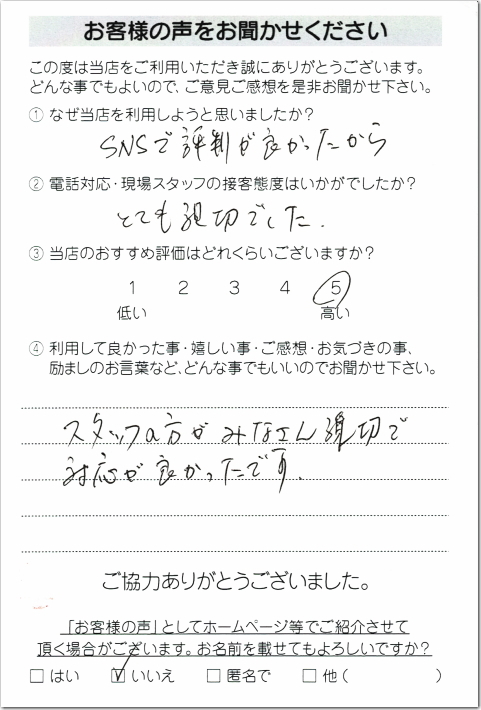 お客様の声をお聞かせください
この度は当店をご利用いただき誠にありがとうございます。
どんな事でもよいので、ご意見ご感想を是非お聞かせ下さい。
① なぜ当店を利用しようと思いましたか?
SNSで評判が良かったから
② 電話対応・現場スタッフの接客態度はいかがでしたか?
とても親切でした.
③ 当店のおすすめ評価はどれくらいございますか?
1 2 3 4 5
低い 高い
④ 利用して良かった事・嬉しい事・ご感想・お気づきの事、
励ましのお言葉など、どんな事でもいいのでお聞かせ下さい。
スタッフの方がみなさん親切で
対応が良かったです.
ご協力ありがとうございました。
「お客様の声」としてホームページ等でご紹介させて
頂く場合がございます。お名前を載せてもよろしいですか?
□ はい ☑ いいえ □ 匿名で □ 他( )